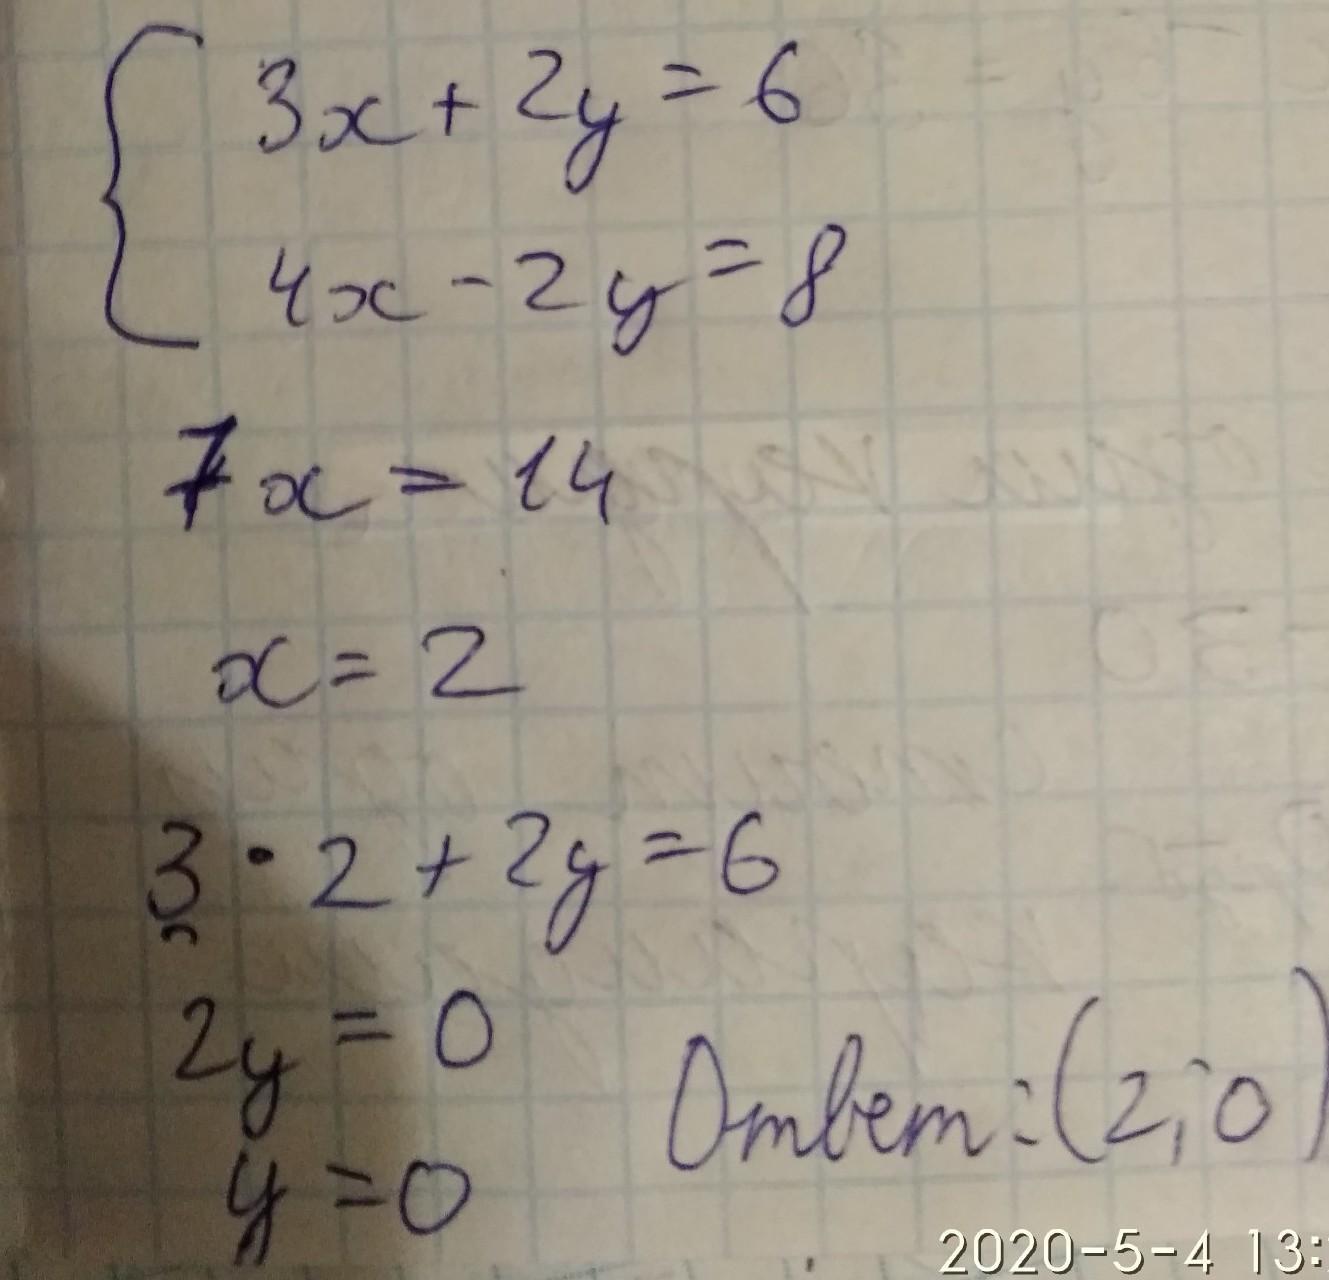 3x + 2y = 6
4x - 2y = 8
7x = 14
x = 2
3 · 2 + 2y = 6
2y = 0
y = 0
Ответ: (2; 0)
2020-5-4 13: